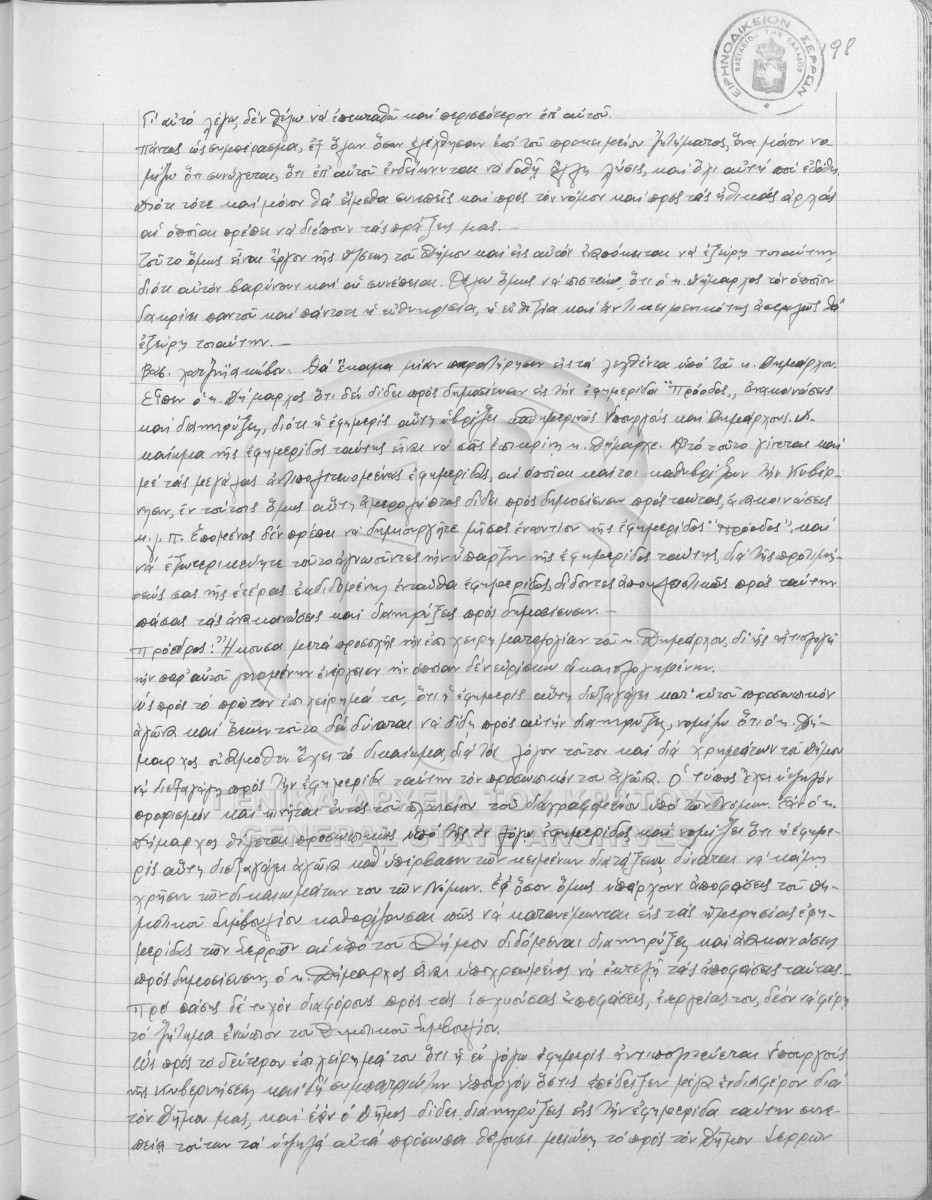 ΕΙΡΗΝΟΔΙΚΕΙΟΝ ΣΕΡΡΩΝ
ΒΑΣΙΛΕΙΟΝ ΤΗΣ ΕΛΛΑΔΟΣ
98
Γι αὐτό λέγω, δέν θέλω νά ἐπεκταθῶ καί περισσότερον ἐπ' αὐτοῦ.
Πάντως ὡς συμπέρασμα, ἐξ ὅλων ὅσων ἐλέχθησαν ἐπί τοῦ προκειμένου ζητήματος, ἕνα μόνον νο-
μίζω ὅτι συνάγεται, ὅτι ἐπ' αὐτοῦ ἐνδείκνυται νά δοθῆ ἄλλη λύσις, καί ὄχι αὐτή πού ἐδόθη.
Διότι τότε καί μόνον θά εἴμεθα συνεπεῖς καί πρός τόν νόμον καί πρός τάς ἠθικάς ἀρχάς
αἱ ὁποῖαι πρέπει νά διέπουν τάς πράξεις μας.—
Τοῦτο ὅμως εἶναι ἔργον τῆς θέσεως τοῦ Δήμου καί εἰς αὐτόν ἀπόκειται νά ἐξεύρη τοιαύτην
διότι αὐτόν βαρύνουν καί αἱ συνέπειαι. Θέλω ὅμως νά πιστεύω, ὅτι ὁ κ. Δήμαρχος τόν ὁποῖον
διακρίνει παντοῦ καί πάντοτε ἡ εὐθυκρισία, ἡ εὐθύτης καί ἀντικειμενικότης ἀσφαλῶς θά
ἐξεύρη τοιαύτην.—
Βασ. Χατζηιακώβου. Θά ἔκαμα μίαν παρατήρησιν εἰς τά λεχθέντα ὑπό τοῦ κ. Δημάρχου.
Εἶπεν ὁ κ. Δήμαρχος ὅτι δέν δίδει πρός δημοσίευσιν εἰς τήν ἐφημερίδα "Πρόοδος" ἀνακοινώσεις
καί διακηρύξεις, διότι ἡ ἐφημερίς αὕτη ὑβρίζει Ὑπουργούς καί Δημάρχους. Δι-
καίωμα τῆς ἐφημερίδος ταύτης εἶναι νά σᾶς ἐπικρίνη κ. Δήμαρχε. Αὐτό τοῦτο γίνεται καί
μέ τάς μεγάλας ἀντιπολιτευομένας ἐφημερίδας, αἱ ὁποῖαι καίτοι καθυβρίζουν τήν Κυβέρ-
νησιν, ἐν τούτοις ὅμως αὕτη ἀμερολήπτως δίδει πρός δημοσίευσιν πρός ταύτας, ἀνακοινώσεις
κ.λ.π. Ἑπομένως δέν πρέπει νά δημιουργῆτε μῖσος ἐναντίον τῆς ἐφημερίδος "Πρόοδος", καί
νά ἐξωτερικεύητε τοῦτο ἀγνοοῦντες τήν ὕπαρξιν τῆς ἐφημερίδος ταύτης, διά τῆς προτιμή-
σεώς σας τῆς ἑτέρας ἐκδιδομένης ἐνταῦθα ἐφημερίδος, δίδοντες ἀποκλειστικῶς πρός ταύτην
πάσας τάς ἀνακοινώσεις καί διακηρύξεις πρός δημοσίευσιν.—
Πρόεδρος: Ἤκουσα μετά προσοχῆς τήν ἐπιχειρηματολογίαν τοῦ κ. Δημάρχου, δι' ἧς αἰτιολογεῖ
τήν παρ' αὐτοῦ γενομένην ἐνέργειαν τήν ὁποίαν δέν εὑρίσκω δικαιολογημένην.
Ὡς πρός τό πρῶτον ἐπιχείρημά του, ὅτι ἡ ἐφημερίς αὕτη διεξαγάγει κατ' αὐτοῦ προσωπικόν
ἀγῶνα καί ἕνεκεν τούτου δέν δύναται νά δίδη πρός αὐτήν διακηρύξεις, νομίζω ὅτι ὁ κ. Δή-
μαρχος οὐδαμόθεν ἔχει τό δικαίωμα, διά τόν λόγον τοῦτον καί διά χρημάτων τοῦ Δήμου
νά διεξαγάγη πρός τήν ἐφημερίδα ταύτην τόν προσωπικόν του ἀγῶνα. Ὁ τύπος ἔχει ὑψηλόν
προορισμόν καί κινεῖται ἐντός τοῦ πλαισίου τοῦ διαγραφομένου ὑπό τῶν Νόμων. Ἐάν ὁ κ.
Δήμαρχος θίγεται προσωπικῶς ὑπό τῆς ἐν λόγω ἐφημερίδος καί νομίζει ὅτι ἡ ἐφημε-
ρίς αὕτη διεξαγάγει ἀγῶνα καθ' ὑπέρβασιν τῶν κειμένων διατάξεων, δύναται νά κάμη
χρῆσιν τῶν δικαιωμάτων του τῶν Νόμων. Ἐφ' ὅσον ὅμως ὑπάρχουν ἀποφάσεις τοῦ Δη-
μοτικοῦ Συμβουλίου καθορίζουσαι πῶς νά κατανέμωνται εἰς τάς ἡμερησίας ἐφη-
μερίδας τῶν Σερρῶν αἱ ὑπό τοῦ Δήμου διδόμεναι διακηρύξεις καί ἀνακοινώσεις
πρός δημοσίευσιν, ὁ κ. Δήμαρχος εἶναι ὑποχρεωμένος νά ἐκτελῆ τάς ἀποφάσεις ταύτας.—
Πρό πάσης δέ τυχόν διαφόρου πρός τάς ἰσχυούσας ἀποφάσεις, ἐνεργείας του, δέον νά φέρη
τό ζήτημα ἐνώπιον τοῦ Δημοτικοῦ Συμβουλίου.
Ὡς πρός τό δεύτερον ἐπιχείρημά του ὅτι ἡ ἐν λόγω ἐφημερίς ἀντιπολιτεύεται Ὑπουργούς
τῆς Κυβερνήσεως καί δή συμπατριώτην Ὑπουργόν ὅστις ἐπέδειξεν μέγα ἐνδιαφέρον διά
τόν Δῆμον μας, καί ἐάν ὁ Δῆμος δίδει διακηρύξεις εἰς τήν ἐφημερίδα ταύτην συνε-
πεία τούτων τά ὑψηλά αὐτά πρόσωπα θέλουσι μειώσει τό πρός τόν Δῆμον Σερρῶν
ΓΕΝΙΚΑ ΑΡΧΕΙΑ ΤΟΥ ΚΡΑΤΟΥΣ
GENERAL STATE ARCHIVES